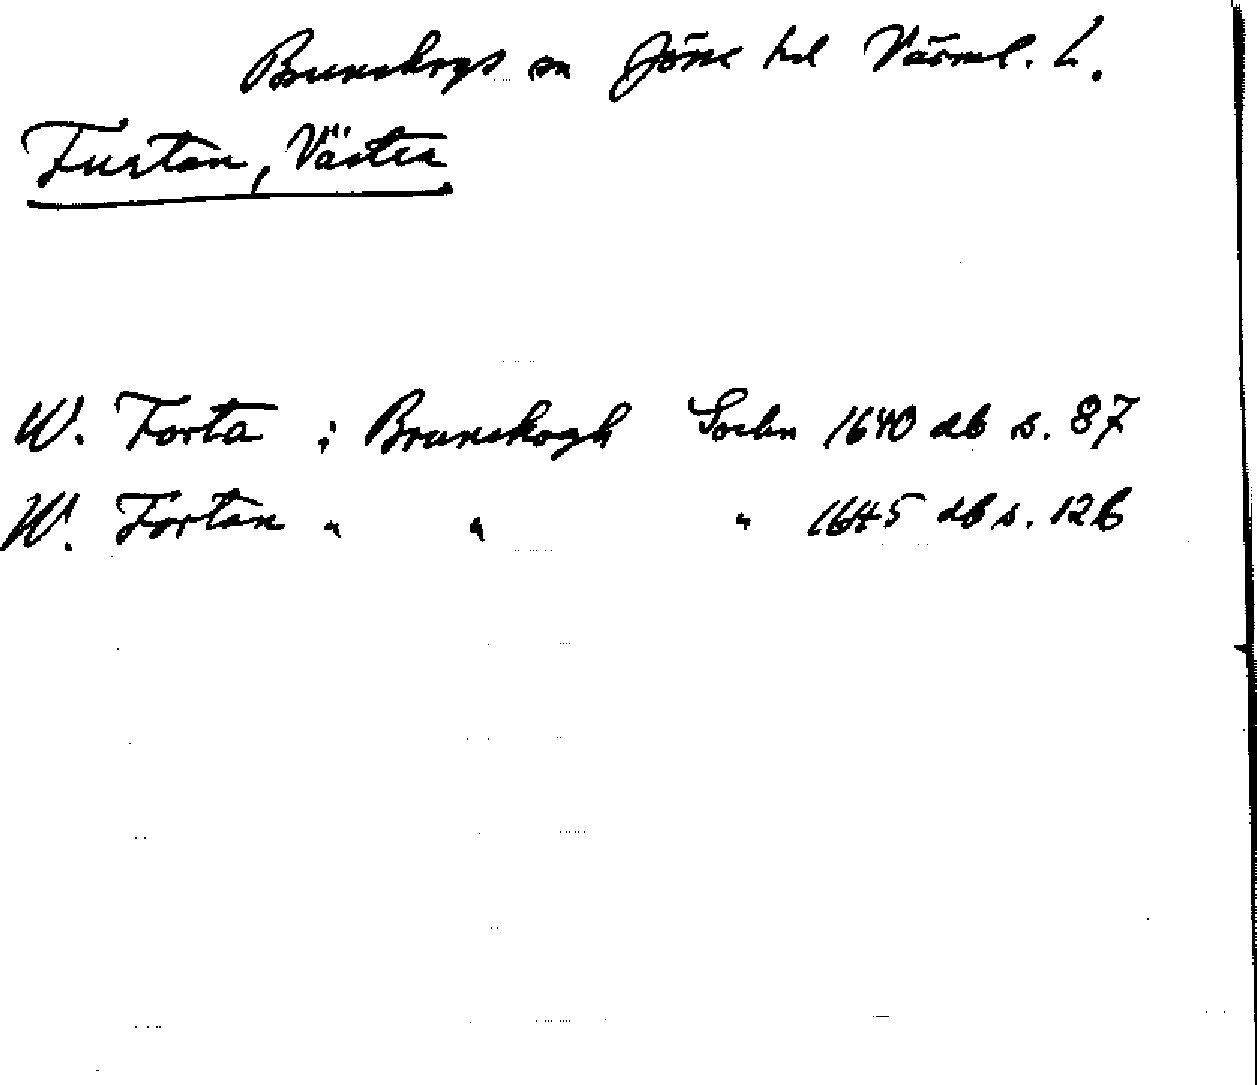 Brunskogs sn Jösse hd Värml. L.
Furtan, Väster
W. Forta i Brunskogh Sochn 1640 db s. 87
W. Fortan " " " 1645 db s. 126